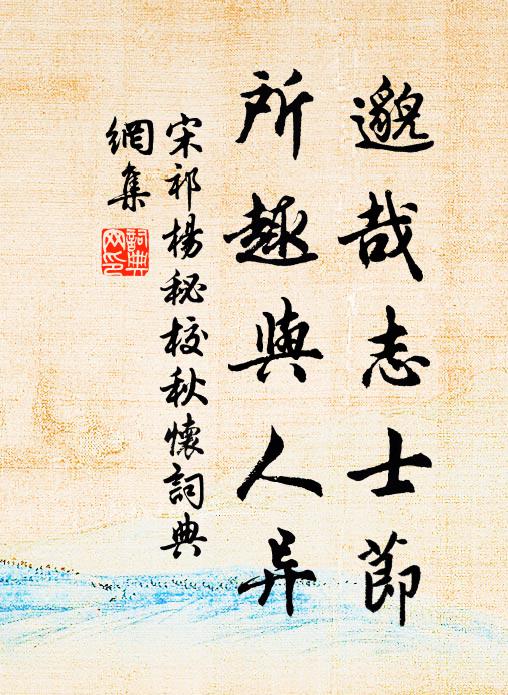 邈哉志士節
所趣與人异
宋祁楊秘校秋懷詞典
網集
詞典
网印